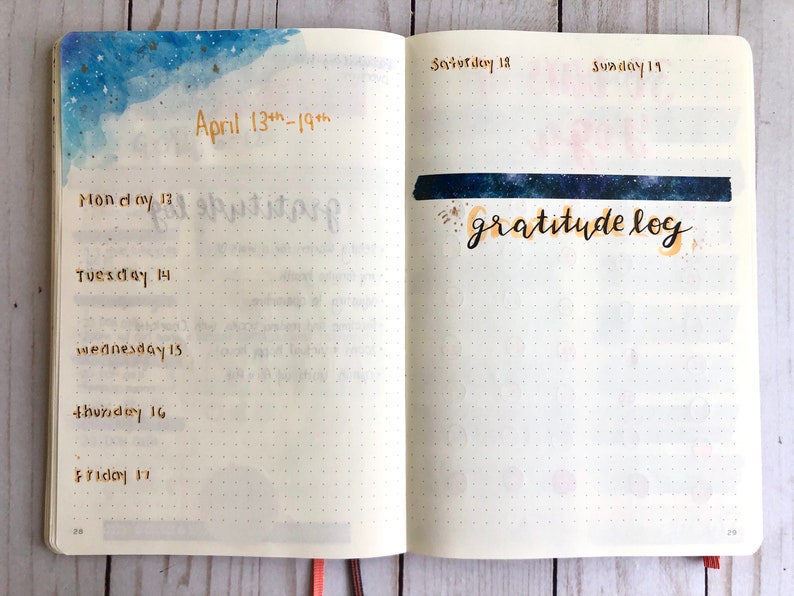 April 13th-19th
Monday 13
Tuesday 14
wednesday 15
thursday 16
Friday 17
28
Saturday 18
Sunday 19
gratitude log
29